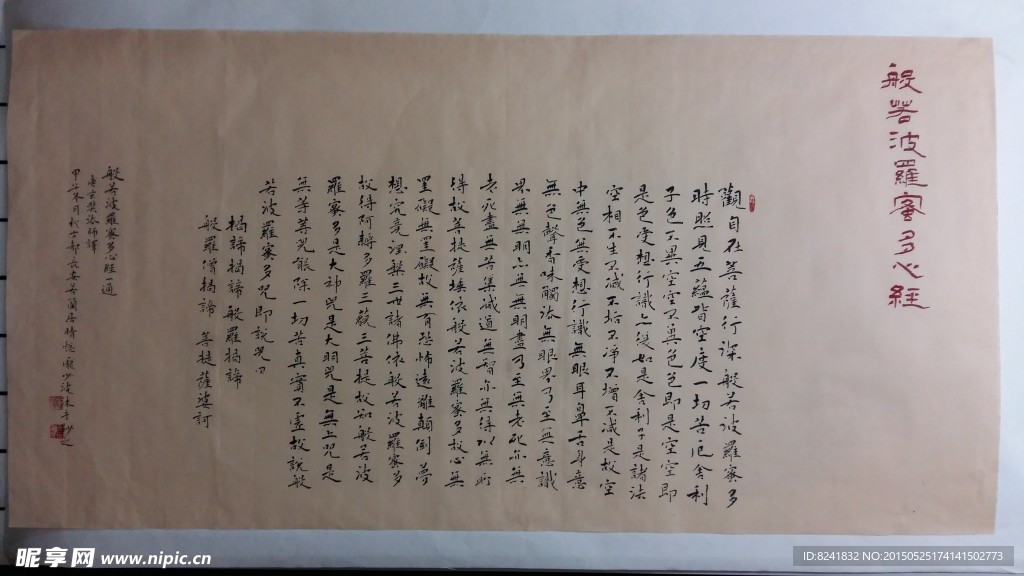 般若波羅蜜多心經
觀自在菩薩行深般若波羅蜜多
時照見五蘊皆空度一切苦厄舍利
子色不異空空不異色色即是空空即
是色受想行識亦復如是舍利子是諸法
空相不生不滅不垢不淨不增不減是故空
中無色無受想行識無眼耳鼻舌身意
無色聲香味觸法無眼界乃至無意識
界無無明亦無無明盡乃至無老死亦無
老死盡無苦集滅道無智亦無得以無所
得故菩提薩埵依般若波羅蜜多故心無
罣礙無罣礙故無有恐怖遠離顛倒夢
想究竟涅槃三世諸佛依般若波羅蜜多
故得阿耨多羅三藐三菩提故知般若波
羅蜜多是大神咒是大明咒是無上咒是
無等等咒能除一切苦真實不虛故說般
若波羅蜜多咒即說咒曰
揭諦揭諦 般羅揭諦
般羅僧揭諦 菩提薩婆訶
般若波羅蜜多心經一通
唐玄奘法師譯
甲午冬月於古都長安
昵享网 www.nipic.cn
ID:8241832 NO:20150525174141502773